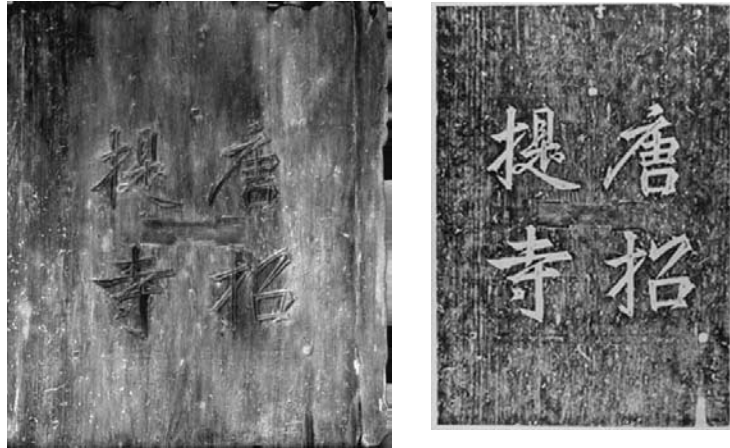 唐招
提寺
唐招
提寺